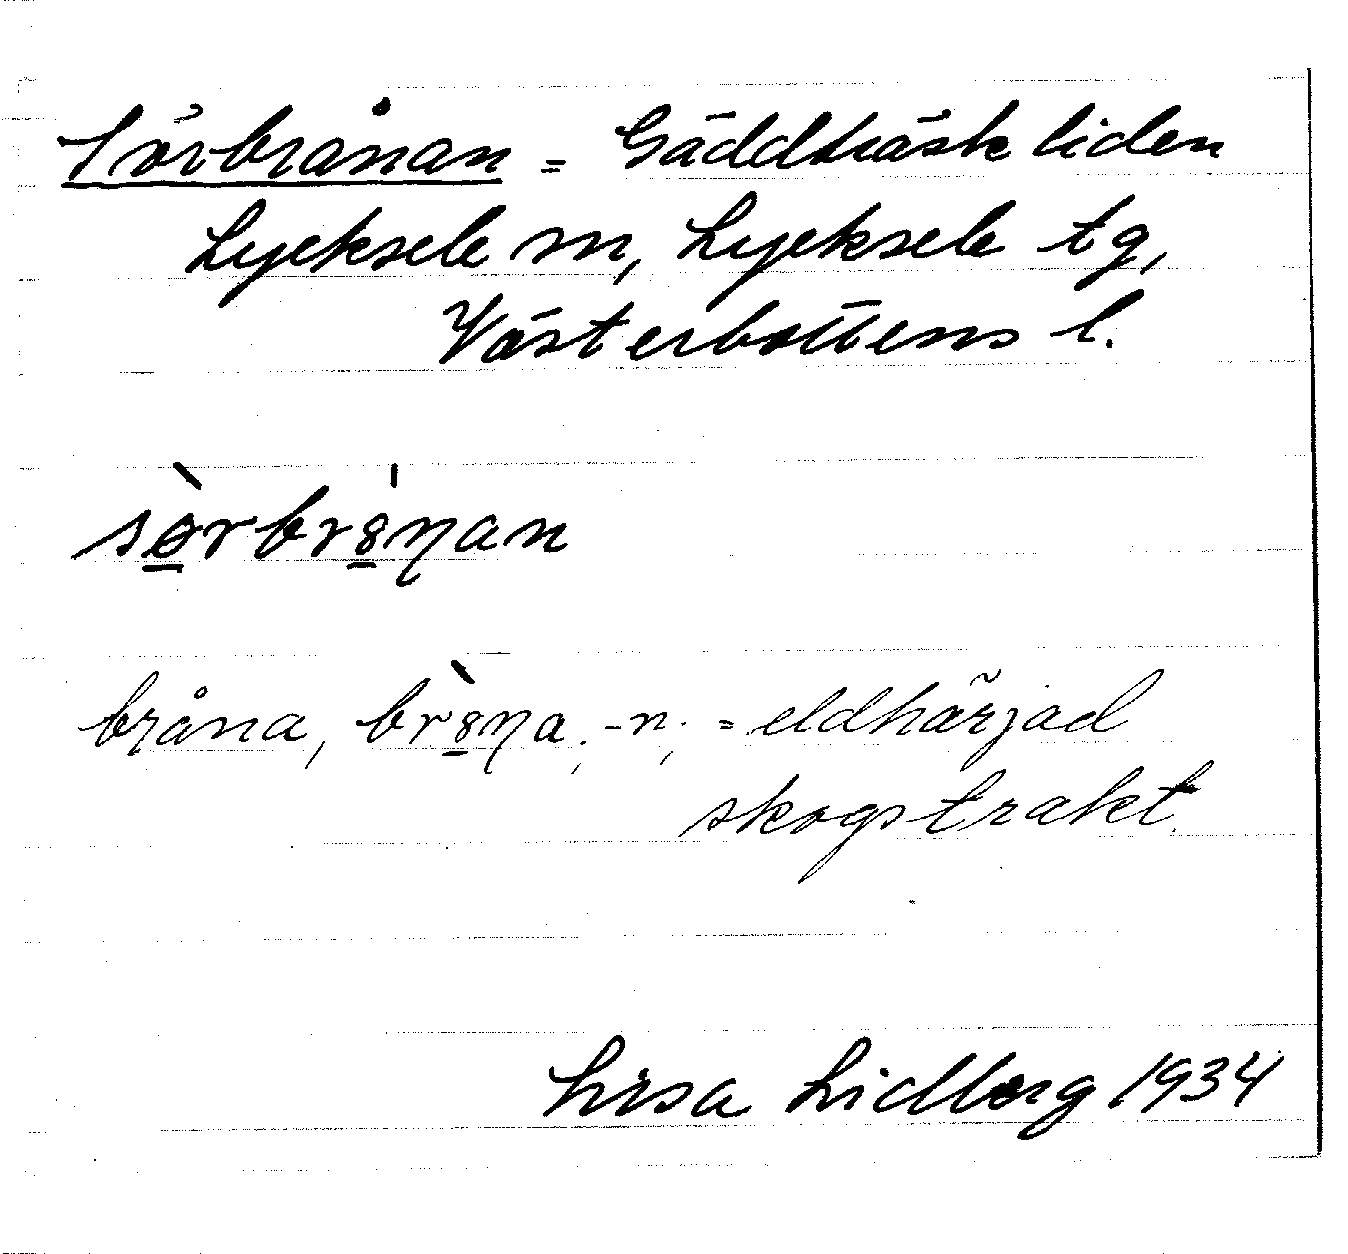 Sörbrånan = Gäddträskliden
Lycksele sn, Lycksele tg,
Västerbottens l.
sø̀rbrȣ́ŋan
bråna, brȣ̀ŋa, -n, = eldhärjad
skogstrakt.
Lisa Lidberg 1934